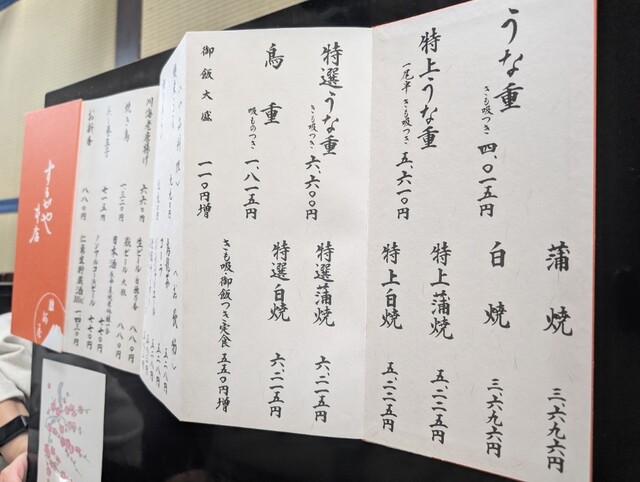 うな重 きも吸つき 四、〇一五円
特上うな重 一尾半 きも吸つき 五、六一〇円
蒲焼 三、六九六円
白焼 三、六九六円
特上蒲焼 五、二二五円
特上白焼 五、二二五円
特選うな重 きも吸つき 六、六〇〇円
鳥重 吸ものつき 一、八一五円
御飯大盛 一一〇円増
特選蒲焼 六、二一五円
特選白焼 六、二一五円
きも吸・御飯つき定食 五五〇円増
川海老唐揚げ 六六〇円
焼き鳥 一、三二〇円
お新香 八八〇円
生ビール
瓶ビール 大瓶 八八〇円
日本酒
ノンアルコールビール 七七〇円
仁亀生貯蔵酒 300ml 一、四三〇円
本店